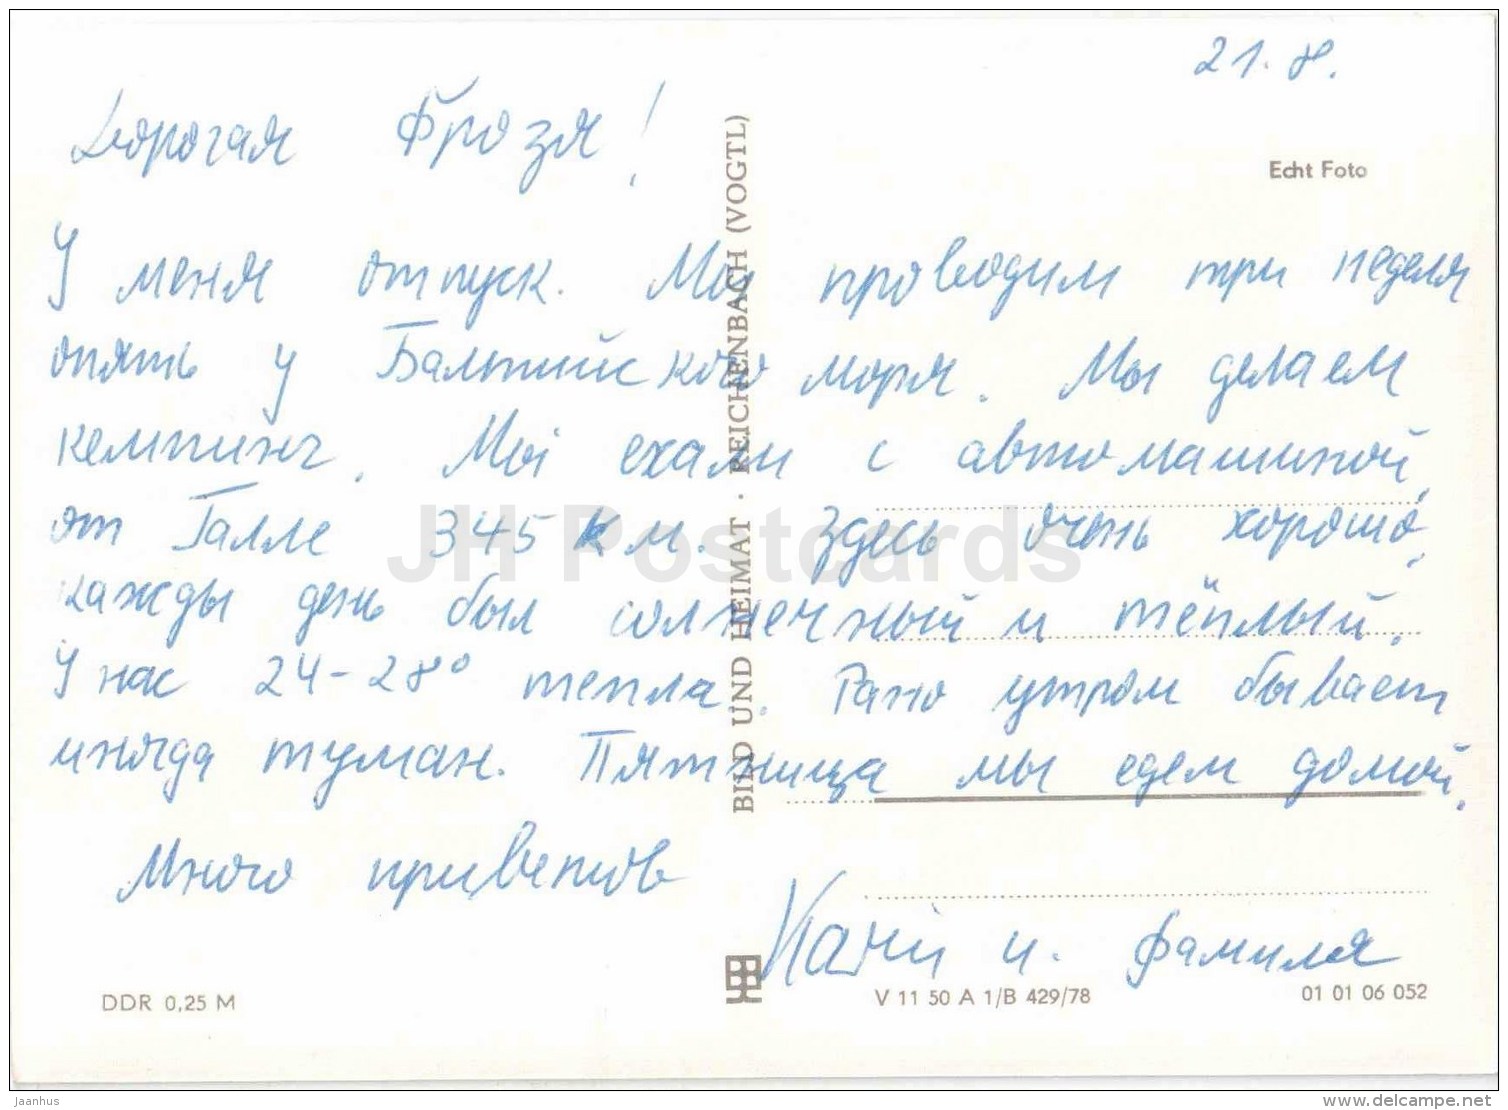 21. 8.
Дорогая Фрозя!
Echt Foto
У меня отпуск. Мы проводим три неделя
опять у Балтийского моря. Мы делаем
кемпинг. Мы ехали с автомашиной,
от Галле 345 км. Здесь очень хорошо,
кажды день был солнечный и тёплый.
У нас 24-28° тепла. Рано утром бывает
иногда туман. Пятница мы едем домой.
Много приветов
и. фамиля
BILD UND HEIMAT · REICHENBACH (VOGTL)
DDR 0,25 M
V 11 50 A 1/B 429/78
01 01 06 052
JH Postcards
Jaanhus
www.delcampe.net